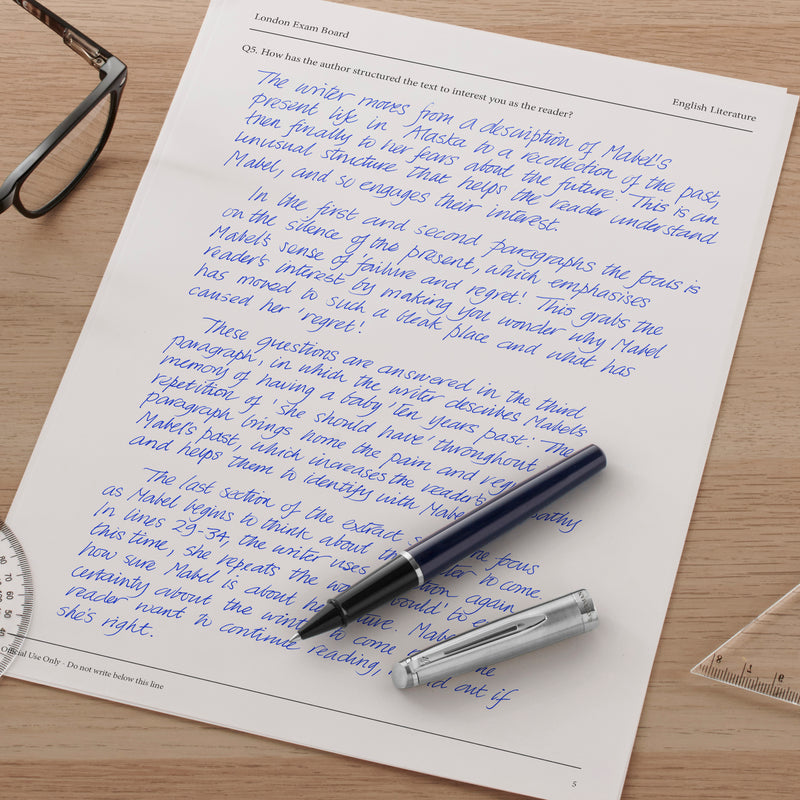 London Exam Board
English Literature
Q5. How has the author structured the text to interest you as the reader?
The writer moves from a description of Mabel's
present life in Alaska to a recollection of the past,
then finally to her fears about the future. This is an
unusual structure that helps the reader understand
Mabel, and so engages their interest.
In the first and second paragraphs the focus is
on the silence of the present, which emphasises
Mabel's sense of 'failure and regret'. This grabs the
reader's interest by making you wonder why Mabel
has moved to such a bleak place and what has
caused her 'regret'.
These questions are answered in the third
paragraph, in which the writer describes Mabel's
memory of having a baby 'ten years past'. The
repetition of 'she should have' throughout
paragraph brings home the pain and
Mabel's past, which increases the reader's
and helps them to identify with
The last section of the extract
as Mabel begins to think about the to come.
In lines 29-34, the writer uses again
this time, she repeats the would' to
how sure Mabel is about
certainty about the to come
reader want to continue reading, out if
she's right.
Official Use Only - Do not write below this line
5
8
9
80
70
60
50
40